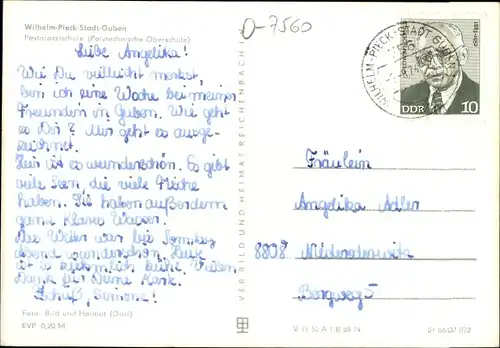 Wilhelm-Pieck-Stadt Guben
Pestalozzischule (Polytechnische Oberschule)
D-7560
Liebe Angelika!
Wie Du vielleicht merkst,
bin ich eine Woche bei meiner
Freundin in Guben. Wie geht
es Dir? Mir geht es ausge-
zeichnet.
Hier ist es wunderschön. Es gibt
viele Seen, die viele Fläche
haben. Sie haben außerdem
ganz klares Wasser.
Das Wetter war bis Sonntag
abend wunderschön. Heute
ist es ziemlich kühl. Vielen
Dank für Deine Karte.
Tschüß, Simone!
Foto: Bild und Heimat (Darr)
EVP 0,20 M
VEB BILD UND HEIMAT REICHENBACH i. V.
WILHELM-PIECK-STADT GUBEN
DDR 10
Fräulein
Angelika Adler
8808 Niederoderwitz
Bergweg 5
V 11 50 A 1/B 68 N
01 06 07 072